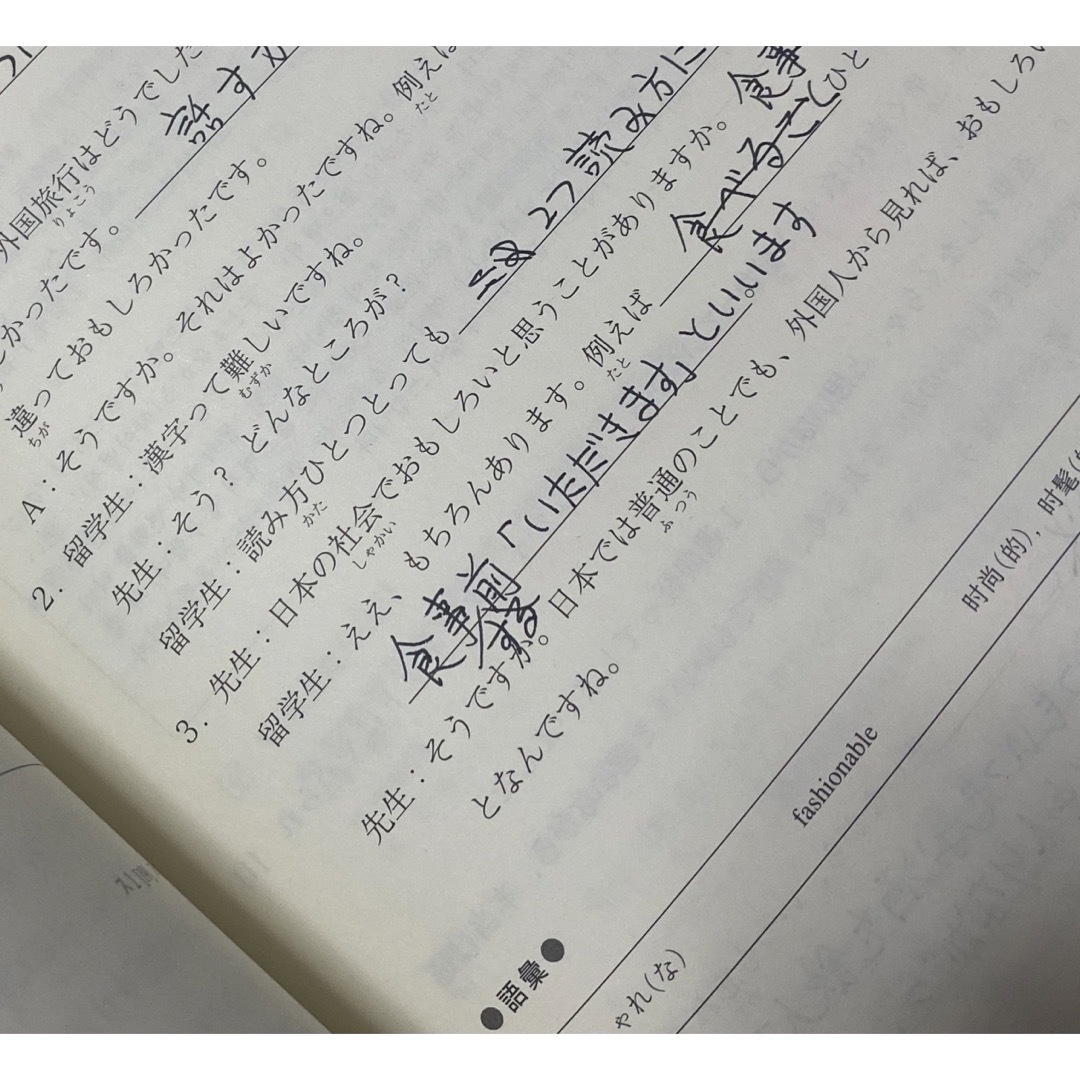 外国旅行はどうでした
りょこう
かったです。 話す
違っておもしろかったです。
ちが
A：そうですか。それはよかったですね。例えば
たと
2. 留学生：漢字って難しいですね。
むずか
先生：そう？ どんなところが？
留学生：読み方ひとつとっても 読み方に
かた
3. 先生：日本の社会でおもしろいと思うことがありますか。 食事
しゃかい
留学生：ええ、もちろんあります。例えば 食べること ひと
たと
食事前「いただきます」といいます。
する
先生：そうですか。日本では普通のことでも、外国人から見れば、おもしろい
ふつう
となんですね。
●語彙●
ゃれ(な) fashionable 时尚(的)，时髦(